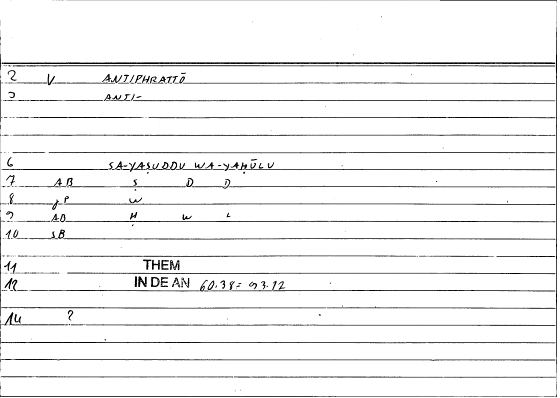 2 V ANTIPHRATTŌ
3 ANTI-
6 SA-YAṢUDDU WA-YAḤŪLU
7 AB Ṣ D D
8 gP W
9 AB Ḥ W L
10 SB
11 THEM
12 IN DE AN 60.38 = 93.12
14 ?